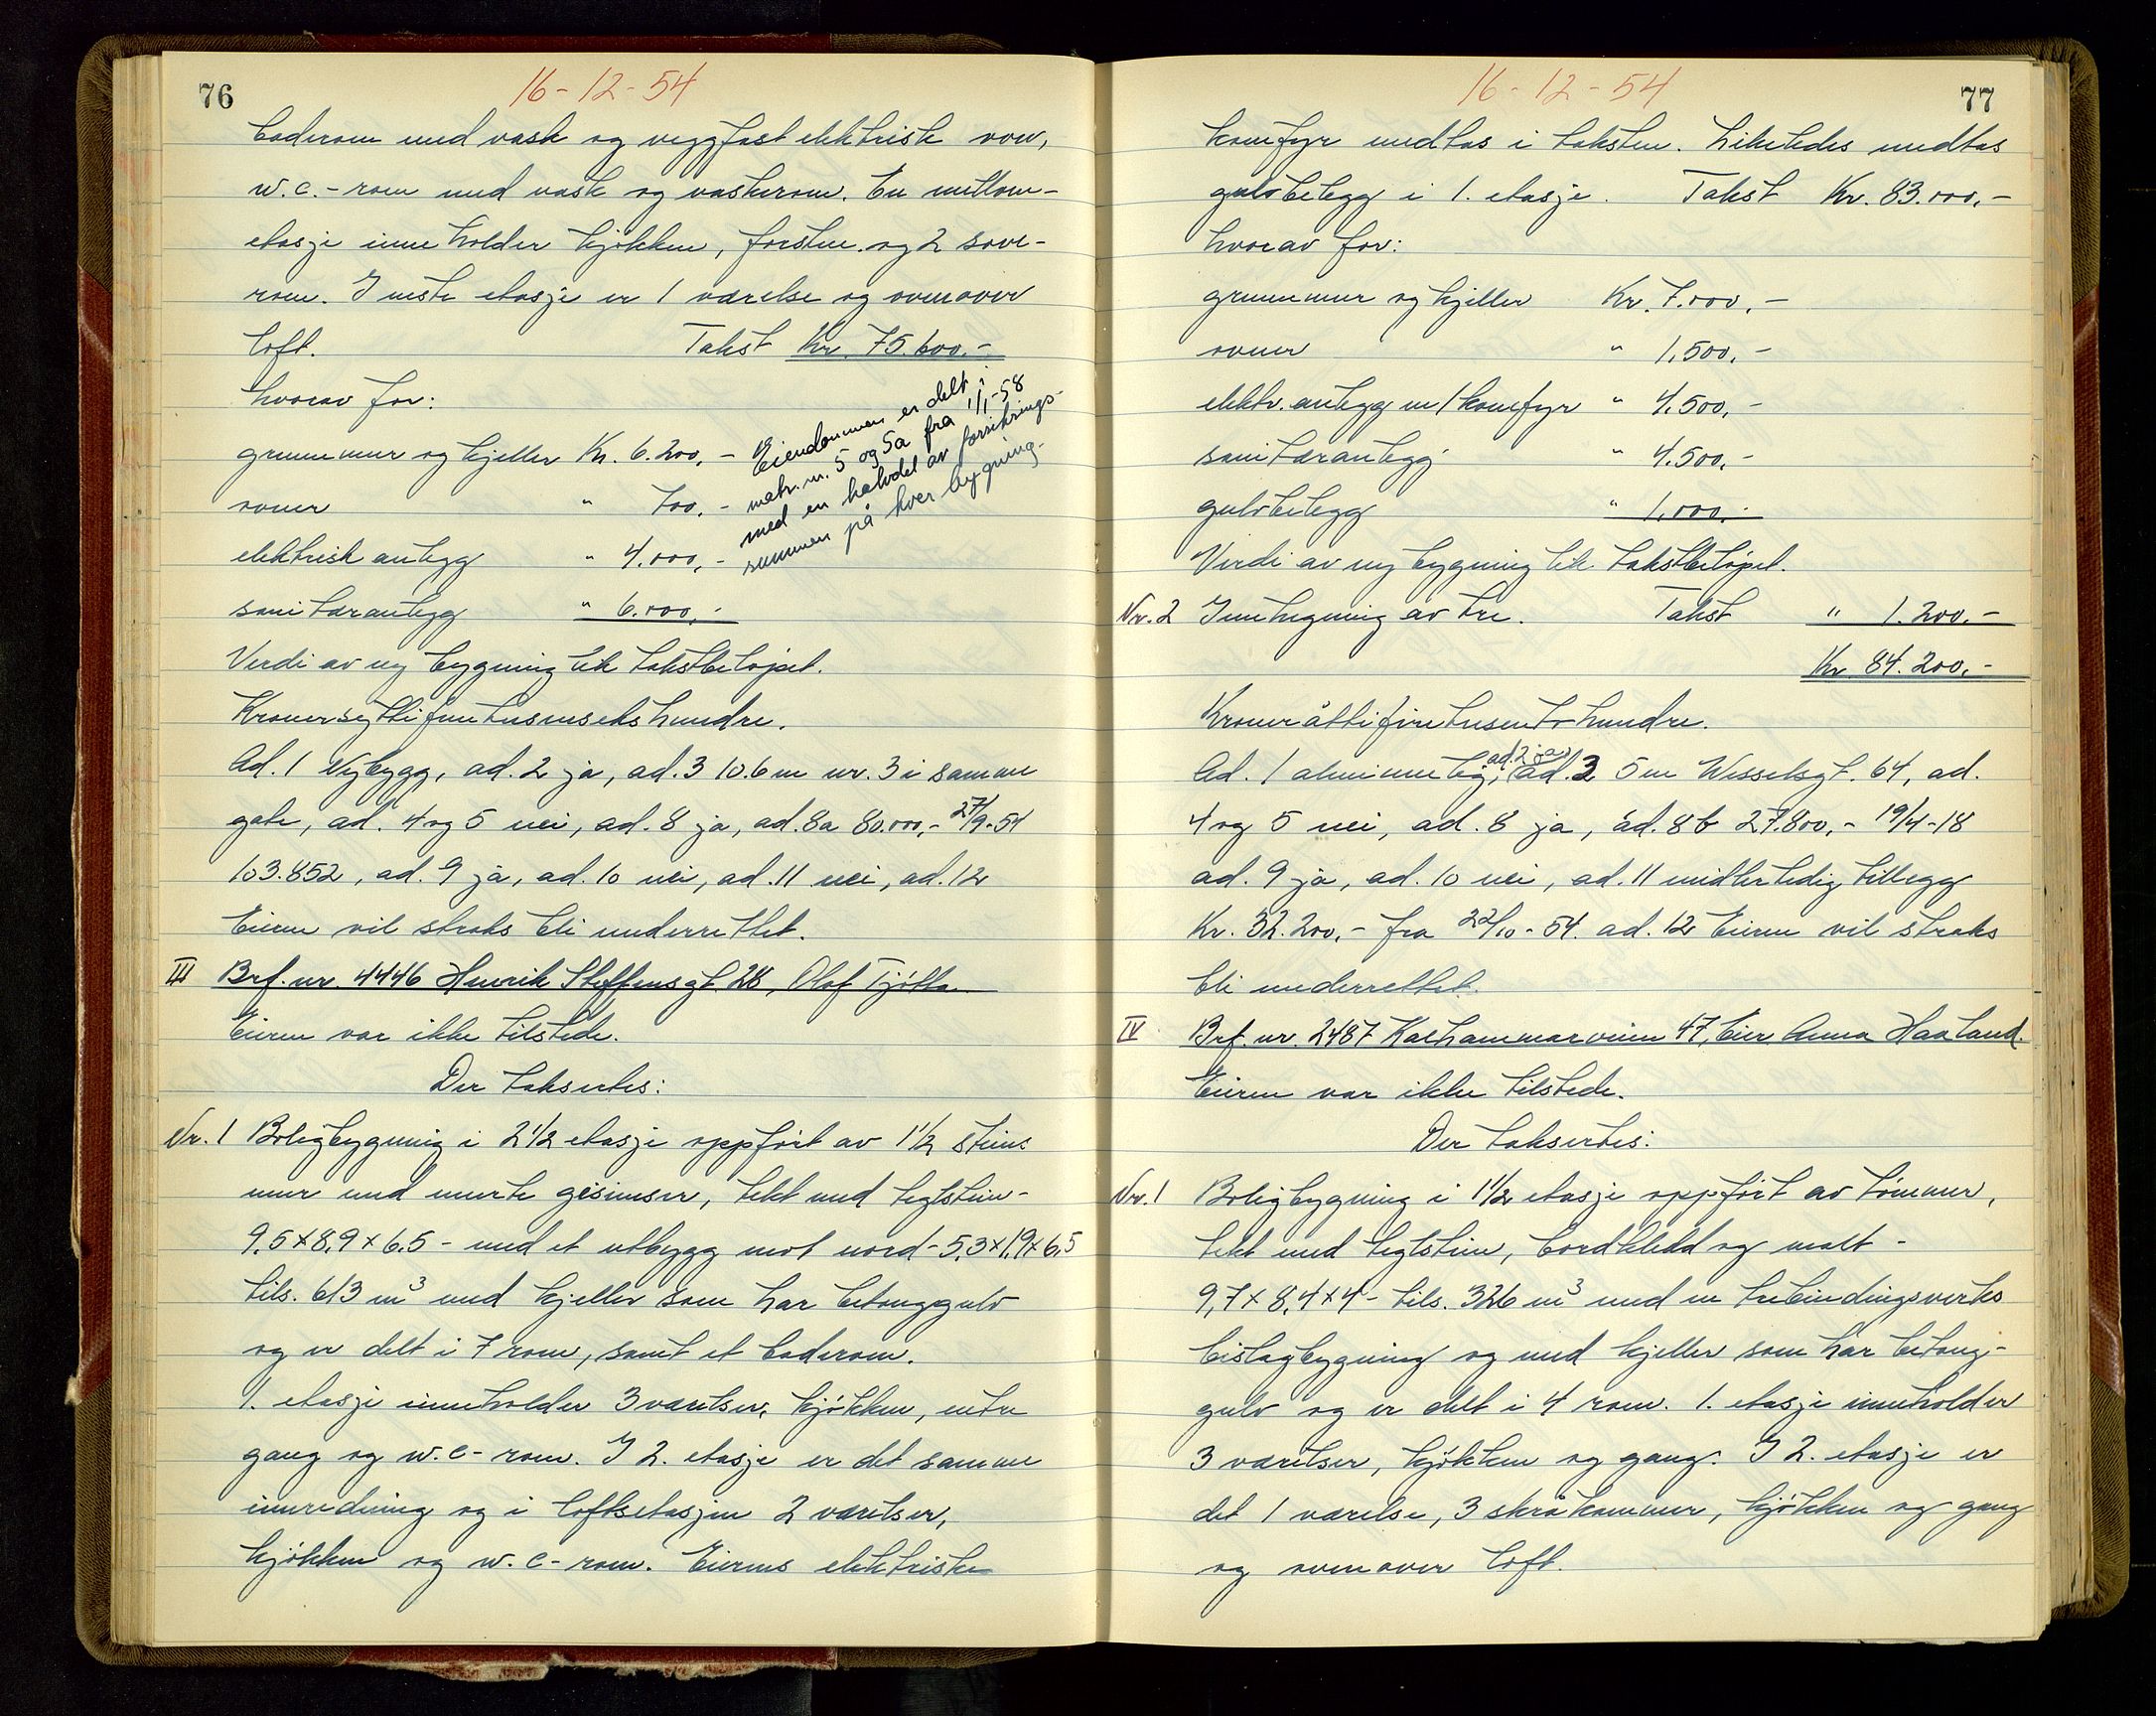 76
16-12-54
baderom med vask og veggfast elektrisk ovn,
w.c.-rom med vask og vaskerom. En mellom-
etasje inneholder kjøkken, forstue og 2 sove-
rom. I neste etasje er 1 værelse og ovenover
loft. Takst Kr. 75.600.-
hvorav for:
grunnmur og kjeller Kr. 6.200,-
ovner " 700,-
elektrisk anlegg " 4.000,-
sanitæranlegg " 6.000,-
Eiendommen er delt i
matr.nr. 5 og 5a fra 1/1-58
med en halvdel av forsikrings-
summen på hver bygning.
Verdi av ny bygning lik takstbeløpet.
Kronersyttifemtusensekshundre.
Ad. 1 Nybygg, ad. 2 ja, ad. 3 10.6 m nr. 3 i samme
gate, ad. 4 og 5 nei, ad. 8 ja, ad. 8a 80.000,- 27/9-54
103.852, ad. 9 ja, ad. 10 nei, ad. 11 nei, ad. 12
Eieren vil straks bli underrettet.
III Brf. nr. 4446 Henrik Steffensgt. 28, Olaf Tjøtta
Eieren var ikke tilstede.
Der taksertes:
Nr. 1 Boligbygning i 2 1/2 etasje oppført av 1 1/2 steins
mur med murte gesimser, tekt med teglstein -
9,5 x 8,9 x 6.5 - med et utbygg mot nord - 5,3 x 1,9 x 6,5
tils. 613 m³ med kjeller som har betonggulv
og er delt i 7 rom, samt et baderom.
1. etasje inneholder 3 værelser, kjøkken, entre
gang og w.c-rom. I 2. etasje er det samme
innredning og i loftsetasjen 2 værelser,
kjøkken og w.c-rom. Eierens elektriske
77
16-12-54
komfyr medtas i taksten. Likeledes medtas
gulvbelegg i 1. etasje. Takst Kr. 83.000,-
hvorav for:
grunnmur og kjeller Kr. 7.000,-
ovner " 1.500,-
elektr. anlegg m/komfyr " 4.500,-
sanitæranlegg " 4.500,-
gulvbelegg " 1.000,-
Verdi av ny bygning lik takstbeløpet.
Nr. 2 Innhegning av tre. Takst " 1.200.-
Kr. 84.200,-
Kroneråttifiretusentohundre.
Ad. 1 alminnelig, ad. 2 ja, ad. 3 5 m Wesselsgt. 64, ad.
4 og 5 nei, ad. 8 ja, ad. 8b 27.800,- 19/4-18
ad. 9 ja, ad. 10 nei, ad. 11 midlertidig tillegg
Kr. 32.200,- fra 22/10-54. ad. 12 Eieren vil straks
bli underrettet.
IV Brf. nr. 2487 Kalhammarveien 47, Eier Anna Haaland.
Eieren var ikke tilstede.
Der taksertes:
Nr. 1 Boligbygning i 1 1/2 etasje oppført av tømmer,
tekt med teglstein, bordkledd og malt -
9,7 x 8,4 x 4 - tils. 326 m³ med en trebindingsverks
bislagbygning og med kjeller som har betong-
gulv og er delt i 4 rom. 1. etasje inneholder
3 værelser, kjøkken og gang. I 2. etasje er
det 1 værelse, 3 skråkammer, kjøkken og gang
og ovenover loft.